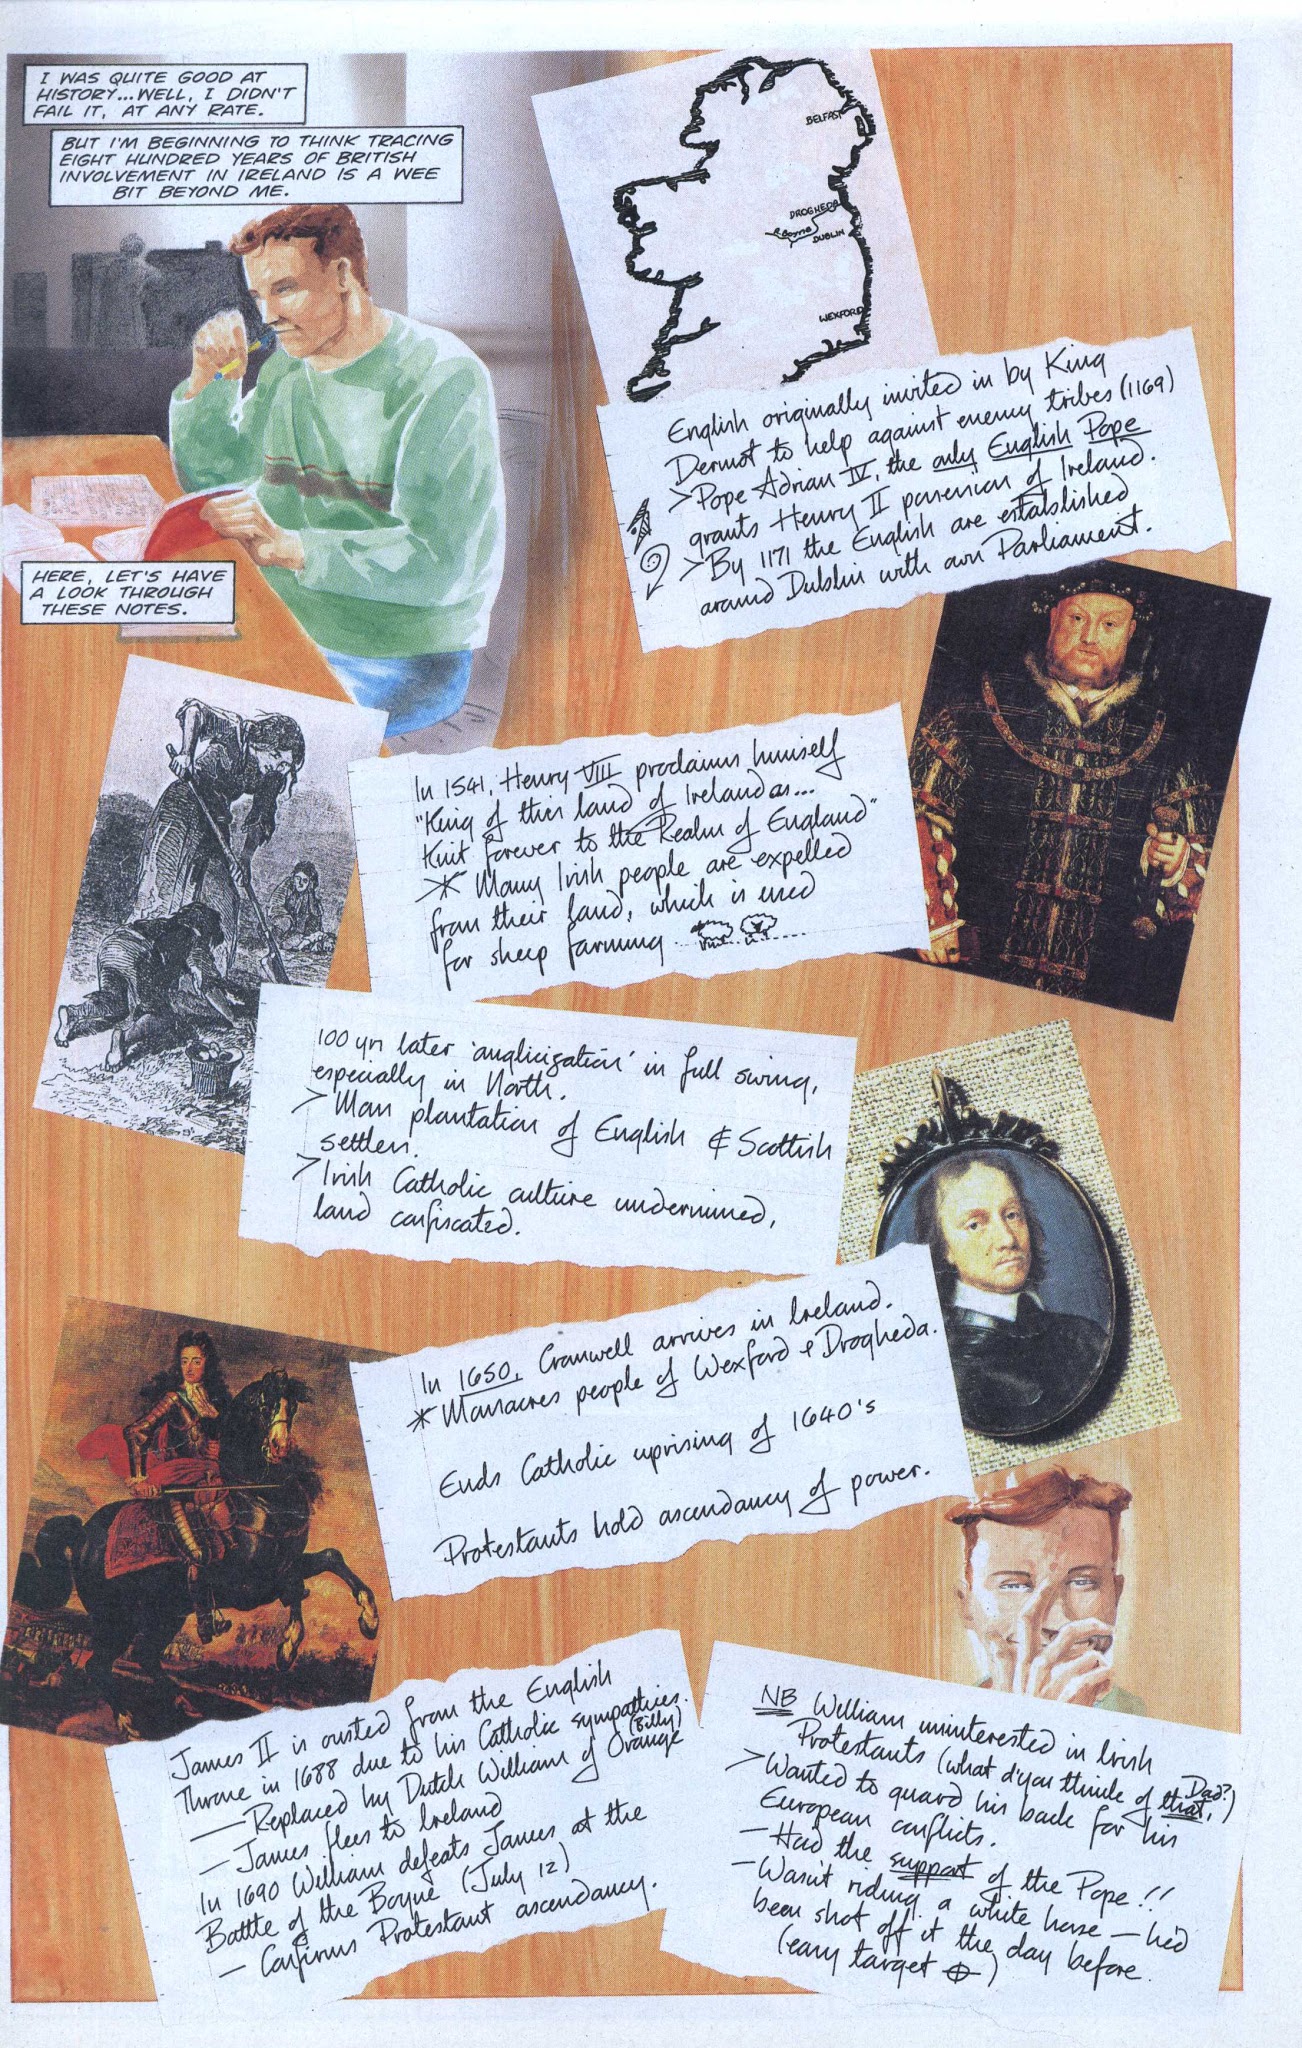 I WAS QUITE GOOD AT
HISTORY...WELL, I DIDN'T
FAIL IT, AT ANY RATE.
BUT I'M BEGINNING TO THINK TRACING
EIGHT HUNDRED YEARS OF BRITISH
INVOLVEMENT IN IRELAND IS A WEE
BIT BEYOND ME.
BELFAST
DROGHEDA
R. Boyne
DUBLIN
WEXFORD
English originally invited in by King
Dermot to help against enemy tribes (1169)
> Pope Adrian IV, the only English Pope
grants Henry II possession of Ireland.
> By 1171 the English are established
around Dublin with own Parliament.
HERE, LET'S HAVE
A LOOK THROUGH
THESE NOTES.
In 1541, Henry VIII proclaims himself
"King of this land of Ireland as...
Knit forever to the Realm of England"
* Many Irish people are expelled
from their land, which is used
for sheep farming
100 yrs later 'anglicization' in full swing,
especially in North.
> Mass plantation of English & Scottish
settlers.
> Irish Catholic culture undermined,
land confiscated.
In 1650, Cromwell arrives in Ireland.
* Massacres people of Wexford & Drogheda.
Ends Catholic uprising of 1640's
Protestants hold ascendancy of power.
James II is ousted from the English
Throne in 1688 due to his Catholic sympathies.
— Replaced by Dutch William (Billy) of Orange
— James flees to Ireland
In 1690 William defeats James at the
Battle of the Boyne (July 12)
— Confirms Protestant ascendancy.
NB William uninterested in Irish
Protestants (what d'you think of that, Dad?)
> Wanted to guard his back for his
European conflicts.
— Had the support of the Pope!!
— Wasn't riding a white horse — he'd
been shot off it the day before.
(easy target)